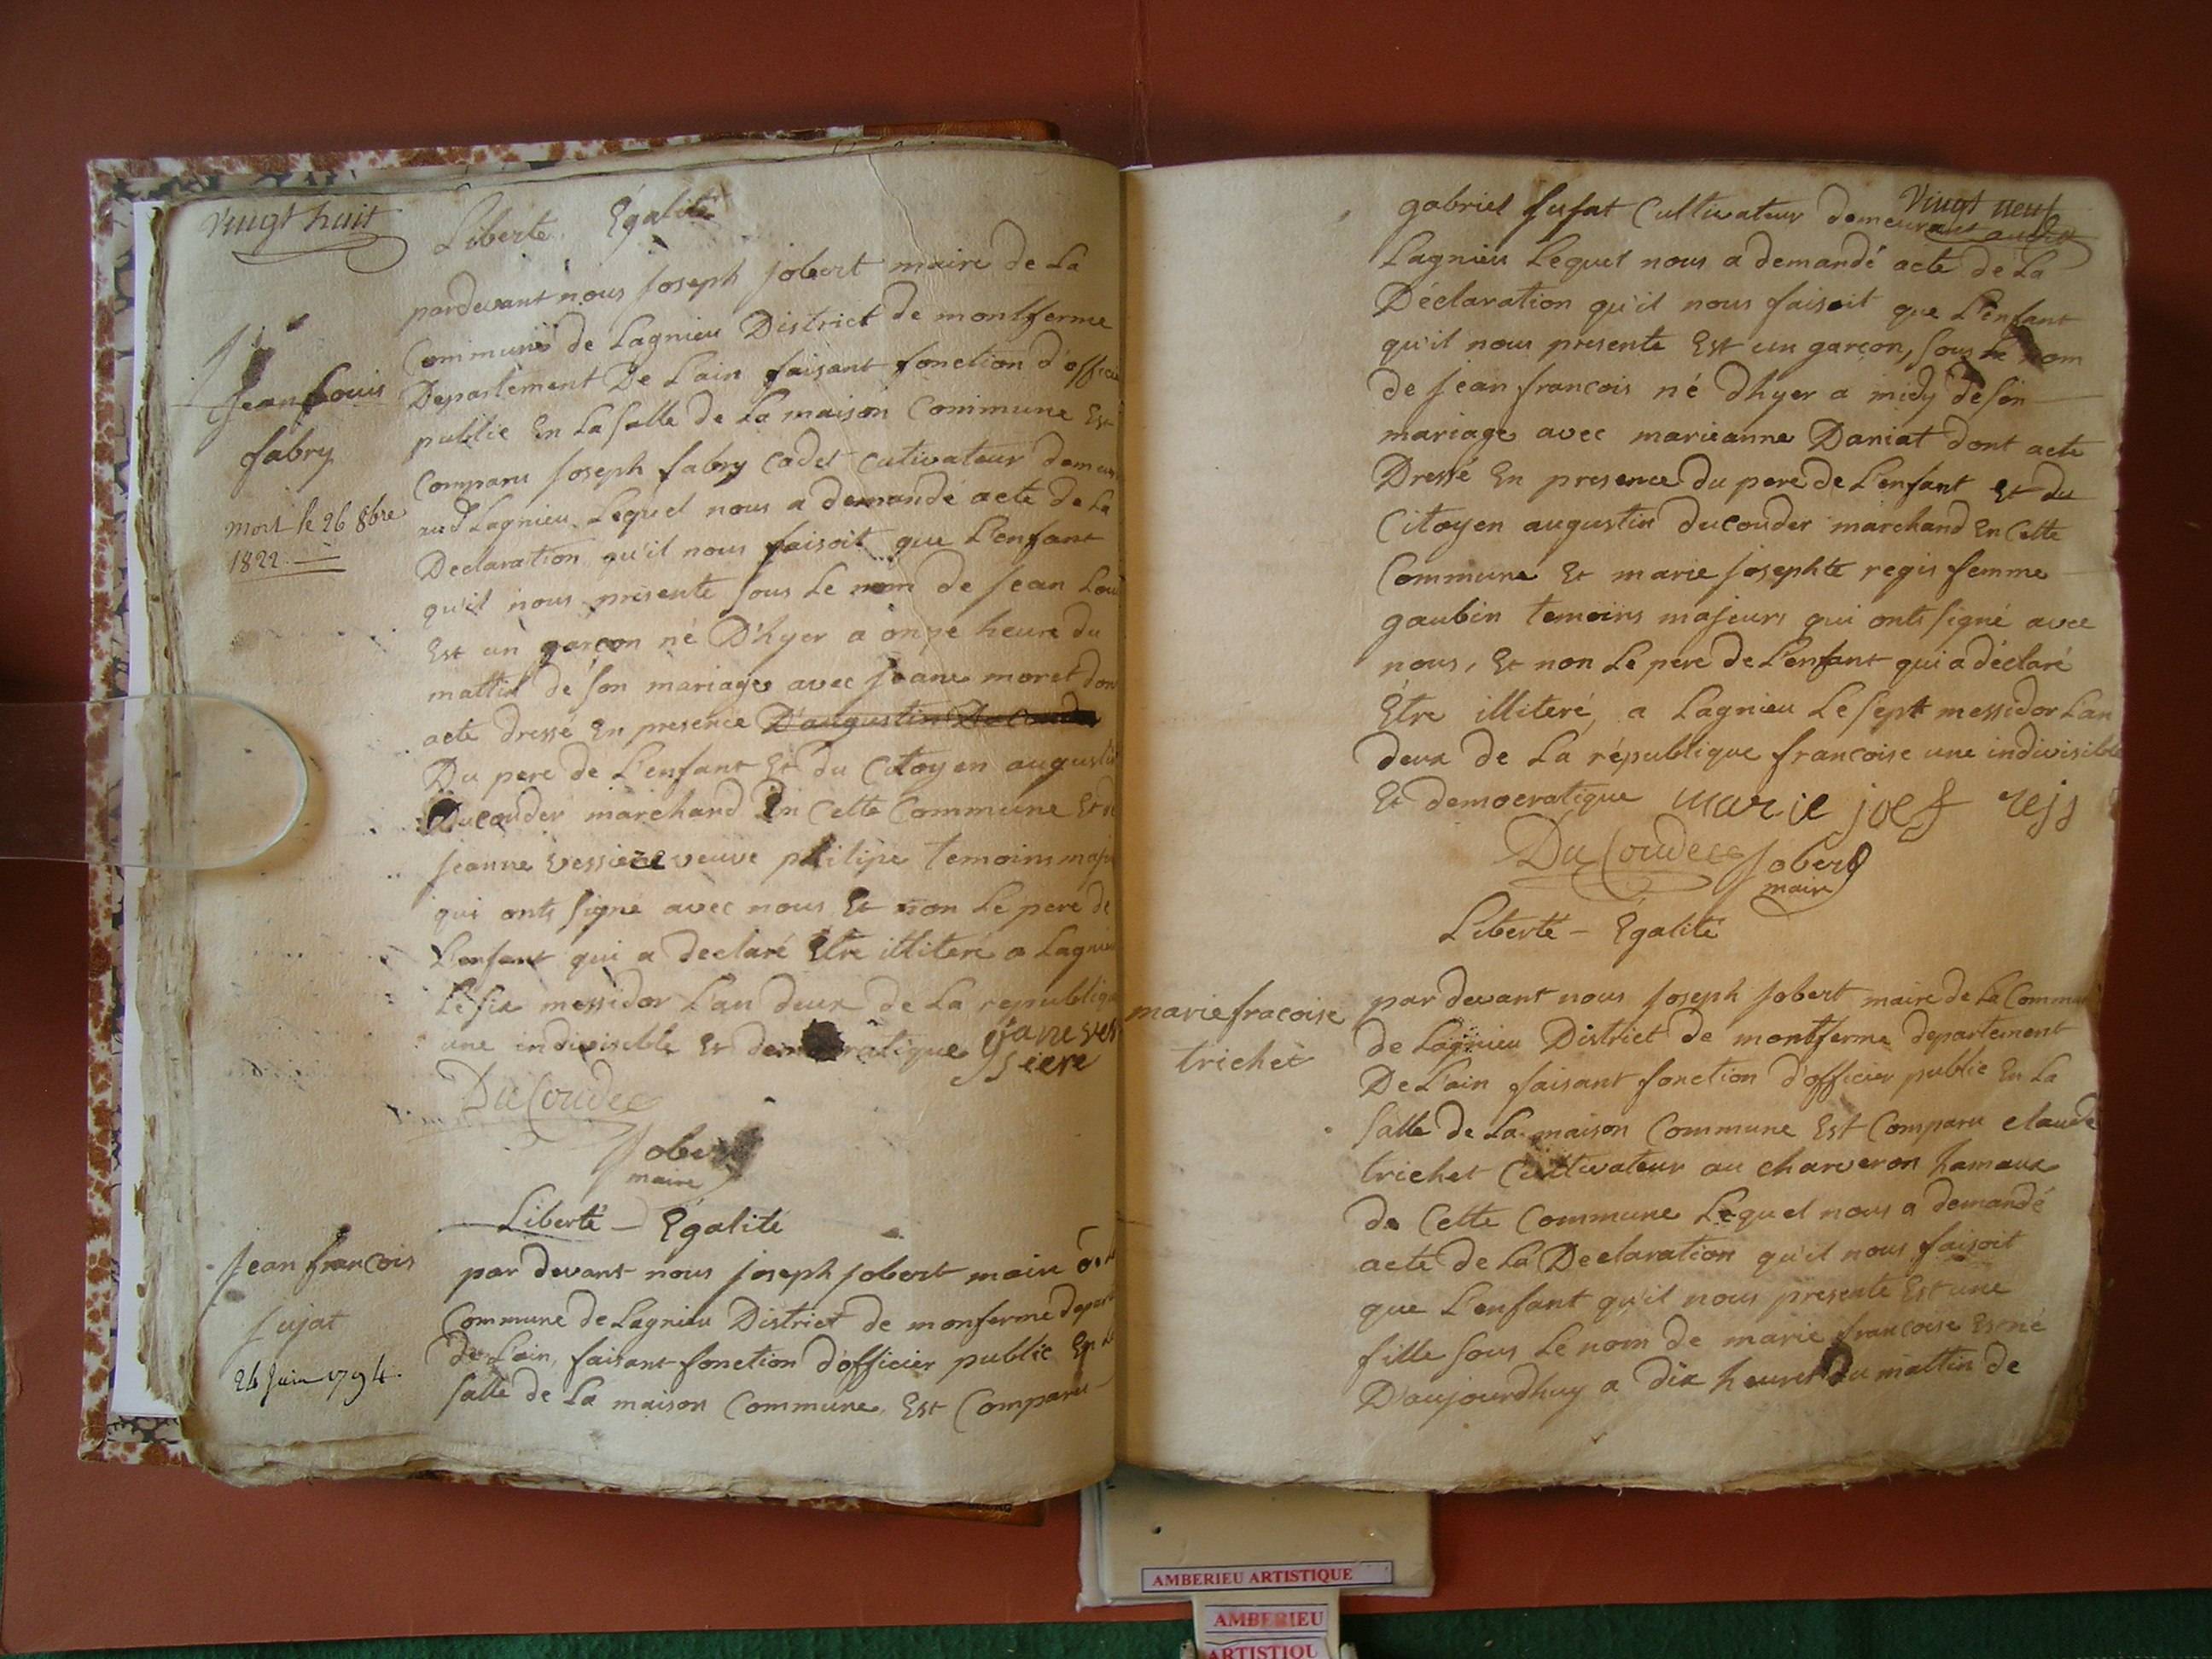 Vingt huit
Liberté Egalité
pardevant nous Joseph Jobert maire de La
Commune de Lagnieu District de montferme
Departement De L'ain faisant fonction d'officier
public En La Salle de La maison Commune Est
Comparu Joseph fabry Cadet Cutivateur demeu
aud Lagnieu Lequel nous a demandé acte de La
Declaration qu'il nous faisoit que L'enfant
qu'il nous presente Sous Le nom de Jean Lou
Est un garcon né D'hyer a onze heure du
mattin de Son mariage avec Jeane moret don
acte dressé En presence D'augustin Ducouder
Du pere de L'enfant Et du Citoyen augustin
Ducouder marchand En Cette Commune Et de
Jeanne vessiere veuve philipe temoins maje
qui onts Signé avec nous Et non Le pere de
L'enfant qui a declaré Etre illiteré a Lagnieu
Le Six messidor L'an deux de La republique
une indivisible Et democratique Jane ves
siere
DuCouder
Jobert
maire
Jean Louis
fabry
mort le 26 8bre
1822
Liberté - Egalité
Jean francois
Jujat
24 Juin 1794.
par devant nous Joseph Jobert maire de
Commune de Lagnieu District de monferme depar
de L'ain, faisant fonction d'officier public En La
Salle de La maison Commune Est Comparu
Vingt neuf
gabriel Jujat Cultivateur demeurant audit
Lagnieu Lequel nous a demandé acte de La
Déclaration qu'il nous faisoit que L'enfant
qu'il nous presente Est un garçon, Sous Le nom
de Jean francois né dhyer a midy de Son
mariage avec marieanne Daniat dont acte
Dressé En presence du pere de L'enfant Et du
Citoyen augustin ducouder marchand En Cette
Commune Et marie Josephte regis femme
gaubin temoins majeurs qui onts signé avec
nous, Et non Le pere de L'enfant qui a déclaré
Etre illiteré, a Lagnieu Le Sept messidor L'an
deux de La république francoise une indivisible
Et democratique marie joef rejs
DuCouder Jobert
maire
Liberté - Egalité
marie fracoise
trichet
par devant nous Joseph Jobert maire de La Commun
de Lagnieu District de montferme departement
De L'ain faisant fonction d'officier public En La
Salle de La maison Commune Est Comparu claude
trichet Cultivateur au charveron hamaux
de Cette Commune Lequel nous a demandé
acte de La Declaration qu'il nous faisoit
que L'enfant qu'il nous presente Est une
fille Sous Le nom de marie francoise Es né
D'aujourdhuy a dix heures Du mattin de
AMBERIEU ARTISTIQUE
AMBERIEU
ARTISTIQU